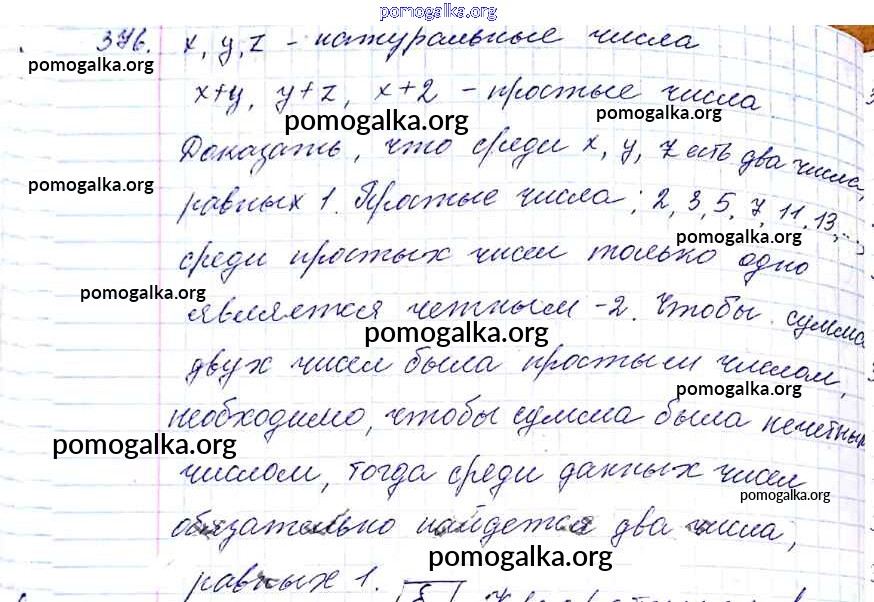 pomogalka.org
376. x, y, z - натуральные числа
pomogalka.org
x+y, y+z, x+z - простые числа
pomogalka.org
pomogalka.org
Доказать, что среди x, y, z есть два числа,
pomogalka.org
равных 1. Простые числа: 2, 3, 5, 7, 11, 13, ...,
pomogalka.org
среди простых чисел только одно
pomogalka.org
является четным - 2. Чтобы сумма
pomogalka.org
двух чисел была простым числом,
pomogalka.org
необходимо, чтобы сумма была нечетным
pomogalka.org
числом, тогда среди данных чисел
pomogalka.org
обязательно найдется два числа,
pomogalka.org
равных 1.